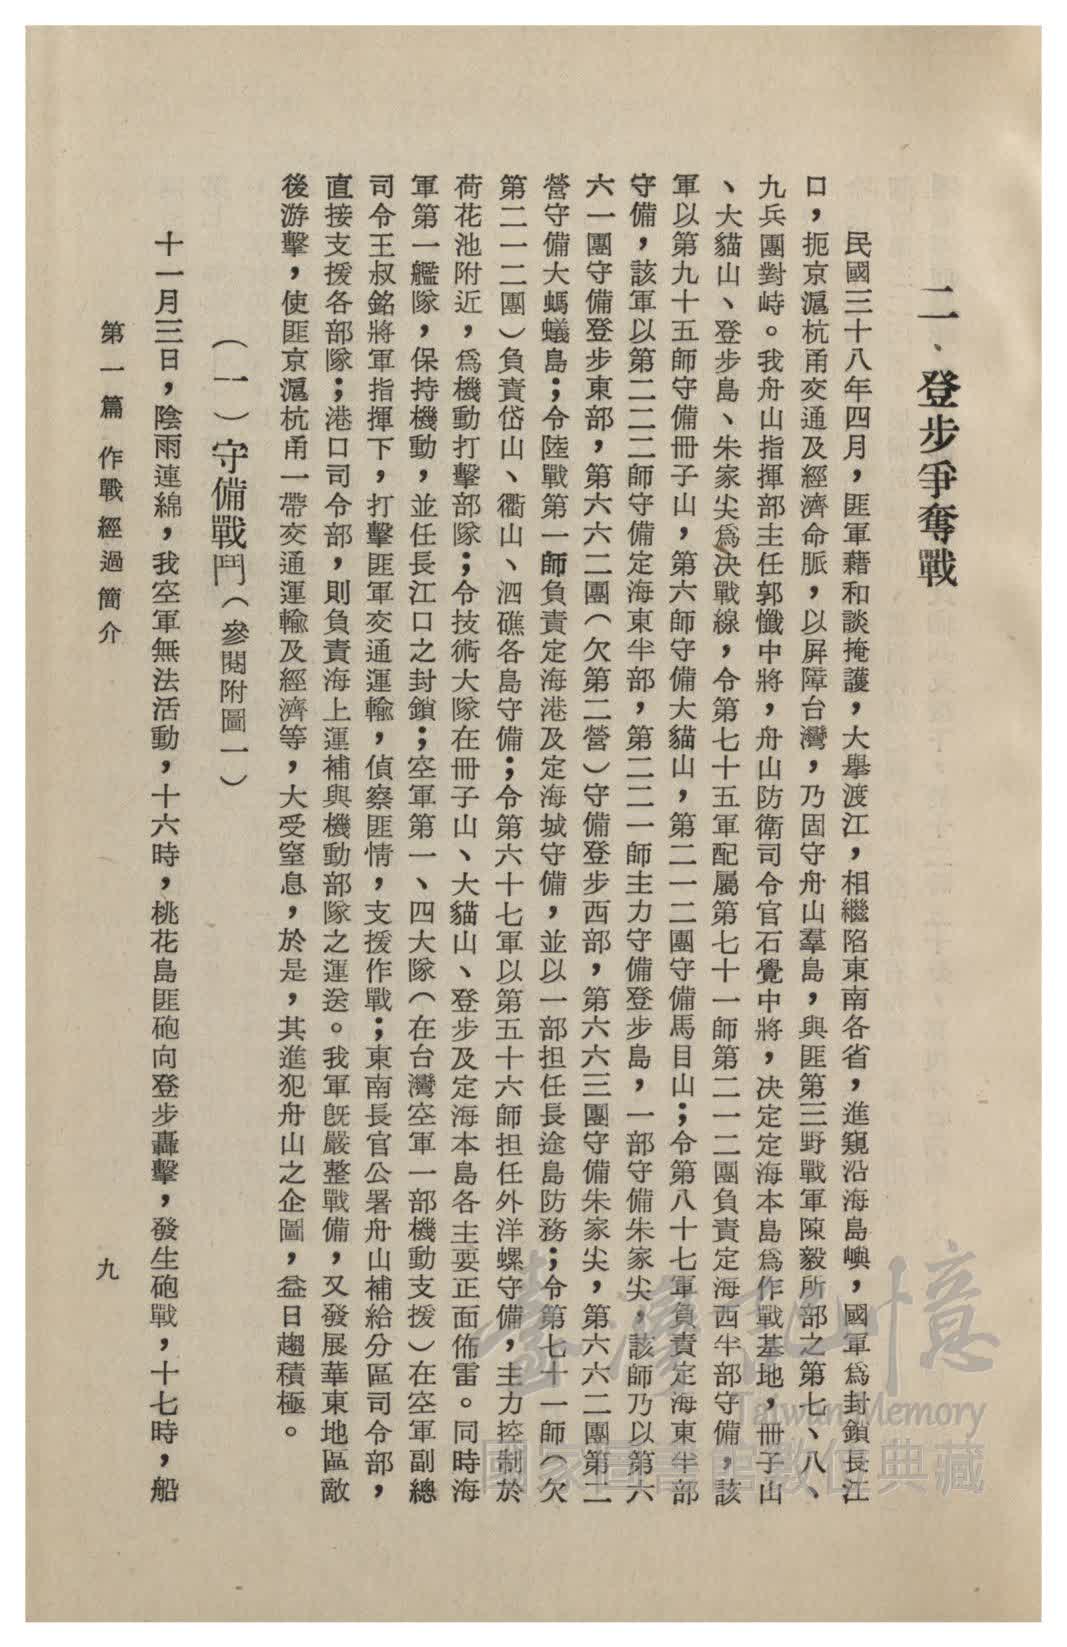 二、登步爭奪戰
民國三十八年四月，匪軍藉和談掩護，大擧渡江，相繼陷東南各省，進窺沿海島嶼，國軍爲封鎖長江
口，扼京滬杭甬交通及經濟命脈，以屏障台灣，乃固守舟山羣島，與匪第三野戰軍陳毅所部之第七、八、
九兵團對峙。我舟山指揮部主任郭懺中將，舟山防衛司令官石覺中將，決定定海本島爲作戰基地，冊子山
、大貓山、登步島、朱家尖爲決戰線，令第七十五軍配屬第七十一師第二一二團負責定海西半部守備，該
軍以第九十五師守備冊子山，第六師守備大貓山，第二一二團守備馬目山；令第八十七軍負責定海東半部
守備，該軍以第二二二師守備定海東半部，第二二一師主力守備登步島，一部守備朱家尖，該師乃以第六
六一團守備登步東部，第六六二團（欠第二營）守備登步西部，第六六三團守備朱家尖，第六六二團第二
營守備大螞蟻島；令陸戰第一師負責定海港及定海城守備，並以一部担任長途島防務；令第七十一師（欠
第二一二團）負責岱山、衢山、泗礁各島守備；令第六十七軍以第五十六師担任外洋螺守備，主力控制於
荷花池附近，爲機動打擊部隊；令技術大隊在冊子山、大貓山、登步及定海本島各主要正面佈雷。同時海
軍第一艦隊，保持機動，並任長江口之封鎖；空軍第一、四大隊（在台灣空軍一部機動支援）在空軍副總
司令王叔銘將軍指揮下，打擊匪軍交通運輸，偵察匪情，支援作戰；東南長官公署舟山補給分區司令部，
直接支援各部隊；港口司令部，則負責海上運補與機動部隊之運送。我軍旣嚴整戰備，又發展華東地區敵
後游擊，使匪京滬杭甬一帶交通運輸及經濟等，大受窒息，於是，其進犯舟山之企圖，益日趨積極。
（一）守備戰鬥（參閱附圖一）
十一月三日，陰雨連綿，我空軍無法活動，十六時，桃花島匪砲向登步轟擊，發生砲戰，十七時，船
第一篇 作戰經過簡介
九
臺灣記憶
Taiwan Memory
國家圖書館數位典藏